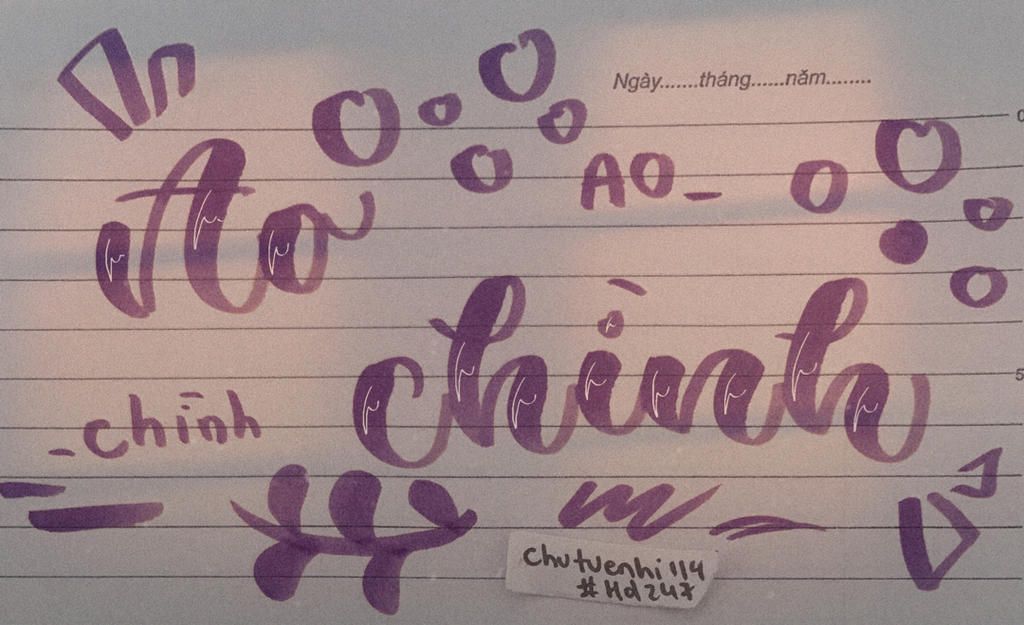 Ngày.......tháng......năm........
Ao
AO_
chình
_chình
5
chutuenhi114
#Hd247